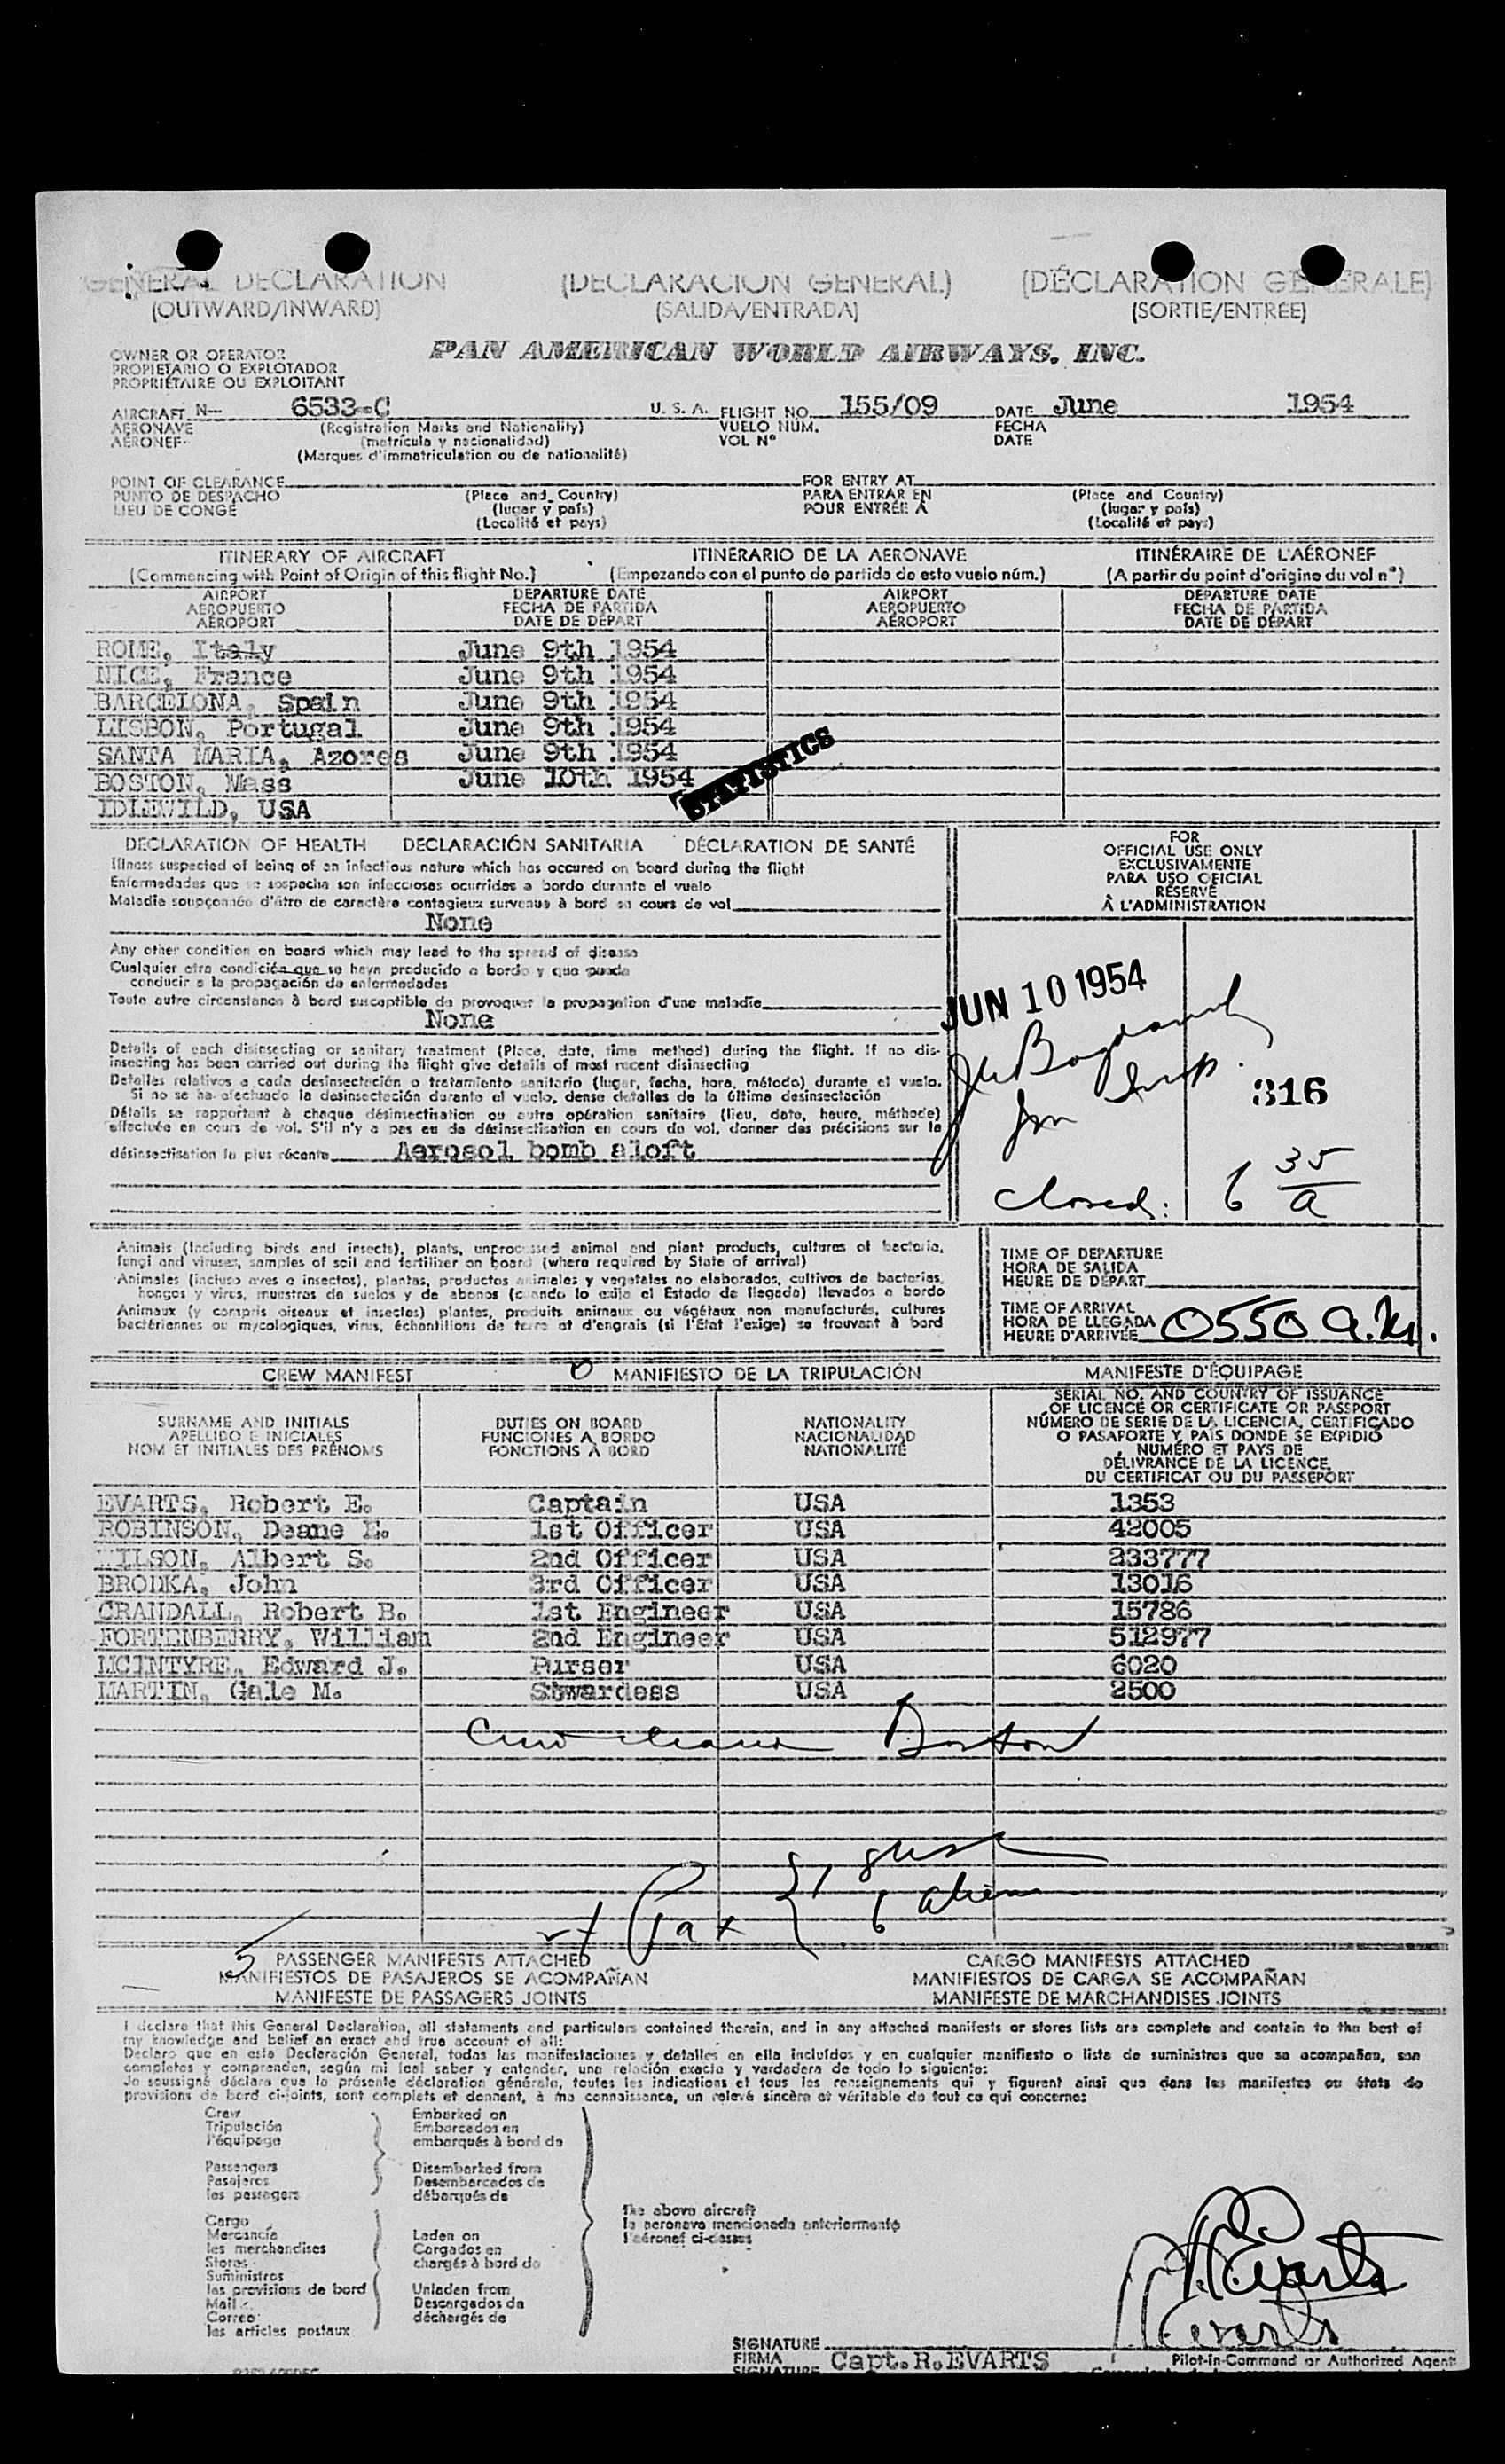 GENERAL DECLARATION (DECLARACIÓN GENERAL) (DÉCLARATION GÉNÉRALE)
(OUTWARD/INWARD) (SALIDA/ENTRADA) (SORTIE/ENTRÉE)
OWNER OR OPERATOR PAN AMERICAN WORLD AIRWAYS, INC.
PROPIETARIO O EXPLOTADOR
PROPRIÉTAIRE OU EXPLOITANT
AIRCRAFT N- 6533-C U. S. A. FLIGHT NO. 155/09 DATE June 1954
AERONAVE (Registration Marks and Nationality) VUELO NÚM. FECHA
AÉRONEF (matrícula y nacionalidad) VOL Nº DATE
(Marques d'immatriculation ou de nationalité)
POINT OF CLEARANCE FOR ENTRY AT
PUNTO DE DESPACHO (Place and Country) PARA ENTRAR EN (Place and Country)
LIEU DE CONGÉ (lugar y país) POUR ENTRÉE À (lugar y país)
(Localité et pays) (Localité et pays)
ITINERARY OF AIRCRAFT ITINERARIO DE LA AERONAVE ITINÉRAIRE DE L'AÉRONEF
(Commencing with Point of Origin of this flight No.) (Empezando con el punto de partida de este vuelo núm.) (A partir du point d'origine du vol nº)
AIRPORT DEPARTURE DATE AIRPORT DEPARTURE DATE
AEROPUERTO FECHA DE PARTIDA AEROPUERTO FECHA DE PARTIDA
AÉROPORT DATE DE DÉPART AÉROPORT DATE DE DÉPART
ROME, Italy June 9th 1954
NICE, France June 9th 1954
BARCELONA, Spain June 9th 1954
LISBON, Portugal June 9th 1954
SANTA MARIA, Azores June 9th 1954
BOSTON, Mass June 10th 1954
STATISTICS
IDLEWILD, USA
DECLARATION OF HEALTH DECLARACIÓN SANITARIA DÉCLARATION DE SANTÉ
Illness suspected of being of an infectious nature which has occured on board during the flight
Enfermedades que se sospecha son infecciosas ocurridas a bordo durante el vuelo
Maladie soupçonnée d'être de caractère contagieux survenue à bord en cours de vol
None
Any other condition on board which may lead to the spread of disease
Cualquier otra condición que se haya producido a bordo y que pueda
conducir a la propagación de enfermedades
Toute autre circonstance à bord susceptible de provoquer la propagation d'une maladie
None
Details of each disinsecting or sanitary treatment (Place, date, time method) during the flight. If no dis-
insecting has been carried out during the flight give details of most recent disinsecting
Detalles relativos a cada desinsectación o tratamiento sanitario (lugar, fecha, hora, método) durante el vuelo.
Si no se ha efectuado la desinsectación durante el vuelo, dense detalles de la última desinsectación
Détails se rapportant à chaque désinsectisation ou autre opération sanitaire (lieu, date, heure, méthode)
effectuée en cours de vol. S'il n'y a pas eu de désinsectisation en cours de vol, donner des précisions sur la
désinsectisation la plus récente Aerosol bomb aloft
FOR
OFFICIAL USE ONLY
EXCLUSIVAMENTE
PARA USO OFICIAL
RÉSERVÉ
À L'ADMINISTRATION
JUN 10 1954
816
Closed: 6 35/a
Animals (Including birds and insects), plants, unprocessed animal and plant products, cultures of bacteria,
fungi and viruses, samples of soil and fertilizer on board (where required by State of arrival)
Animales (incluso aves e insectos), plantas, productos animales y vegetales no elaborados, cultivos de bacterias,
hongos y virus, muestras de suelos y de abonos (cuando lo exija el Estado de llegada) llevados a bordo
Animaux (y compris oiseaux et insectes) plantes, produits animaux ou végétaux non manufacturés, cultures
bactériennes ou mycologiques, virus, échantillons de terre et d'engrais (si l'État l'exige) se trouvant à bord
TIME OF DEPARTURE
HORA DE SALIDA
HEURE DE DÉPART
TIME OF ARRIVAL
HORA DE LLEGADA
HEURE D'ARRIVÉE 0550 a.m.
CREW MANIFEST MANIFIESTO DE LA TRIPULACIÓN MANIFESTE D'ÉQUIPAGE
SURNAME AND INITIALS
APELLIDO E INICIALES
NOM ET INITIALES DES PRÉNOMS
DUTIES ON BOARD
FUNCIONES A BORDO
FONCTIONS À BORD
NATIONALITY
NACIONALIDAD
NATIONALITÉ
SERIAL NO. AND COUNTRY OF ISSUANCE
OF LICENCE OR CERTIFICATE OR PASSPORT
NÚMERO DE SERIE DE LA LICENCIA, CERTIFICADO
O PASAPORTE Y PAÍS DONDE SE EXPIDIÓ
NUMÉRO ET PAYS DE
DÉLIVRANCE DE LA LICENCE,
DU CERTIFICAT OU DU PASSEPORT
EVARTS, Robert E. Captain USA 1353
ROBINSON, Deane E. 1st Officer USA 42005
WILSON, Albert S. 2nd Officer USA 233777
BRODKA, John 3rd Officer USA 13016
CRANDALL, Robert B. 1st Engineer USA 15786
FORTENBERRY, William 2nd Engineer USA 512977
MCINTYRE, Edward J. Purser USA 6020
MARTIN, Gale M. Stwardess USA 2500
Boston
Pax { 6 alien
5 PASSENGER MANIFESTS ATTACHED CARGO MANIFESTS ATTACHED
MANIFIESTOS DE PASAJEROS SE ACOMPAÑAN MANIFIESTOS DE CARGA SE ACOMPAÑAN
MANIFESTE DE PASSAGERS JOINTS MANIFESTE DE MARCHANDISES JOINTS
I declare that this General Declaration, all statements and particulars contained therein, and in any attached manifests or stores lists are complete and contain to the best of
my knowledge and belief an exact and true account of all:
Declaro que en esta Declaración General, todas las manifestaciones y detalles en ella incluídos y en cualquier manifiesto o lista de suministros que se acompañan, son
completos y comprenden, según mi leal saber y entender, una relación exacta y verdadera de todo lo siguiente:
Je soussigné déclare que la présente déclaration générale, toutes les indications et tous les renseignements qui y figurent ainsi que dans les manifestes ou états de
provisions de bord ci-joints, sont complets et donnent, à ma connaissance, un relevé sincère et véritable de tout ce qui concerne:
Crew Embarked on
Tripulación Embarcados en
l'équipage embarqués à bord de
Passengers Disembarked from
Pasajeros Desembarcados de
les passagers débarqués de
The above aircraft
la aeronave mencionada anteriormente
l'aéronef ci-dessus
Cargo
Mercancía Laden on
les merchandises Cargados en
Stores chargés à bord de
Suministros
les provisions de bord Unladen from
Mail Descargados de
Correo déchargés de
les articles postaux
R Evarts
Evarts
SIGNATURE
FIRMA Capt. R. EVARTS Pilot-in-Command or Authorized Agent
SIGNATURE